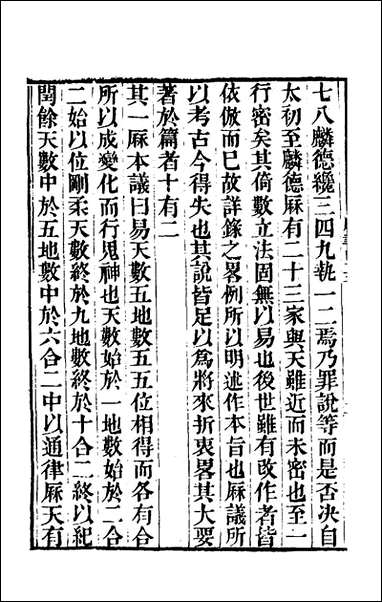 七八麟德纔三四九執一二焉乃罪說等而是否決自
太初至麟德厤有二十三家與天雖近而未密也至一
行密矣其倚數立法固無以易也後世雖有改作者皆
依倣而已故詳錄之畧例所以明述作本旨也厤議所
以考古今得失也其說皆足以為將來折衷畧其大要
著於篇者十有二
其一厤本議曰易天數五地數五五位相得而各有合
所以成變化而行鬼神也天數始於一地數始於二合
二始以位剛柔天數終於九地數終於十合二終以紀
閏餘天數中於五地數中於六合二中以通律厤天有